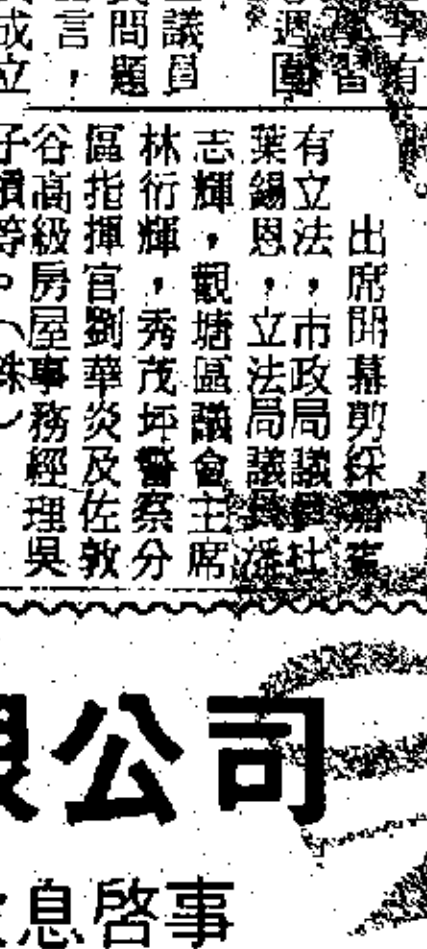 有
議員
問題
言，
成立
出席開幕剪綵嘉賓
有立法，市政局議員杜
葉錫恩，立法局議員潘
志輝，觀塘區議會主席
林衍輝，秀茂坪警察分
區指揮官劉華炎及佐敦
谷高級房屋事務經理吳
等。（珠）
公司
息啓事